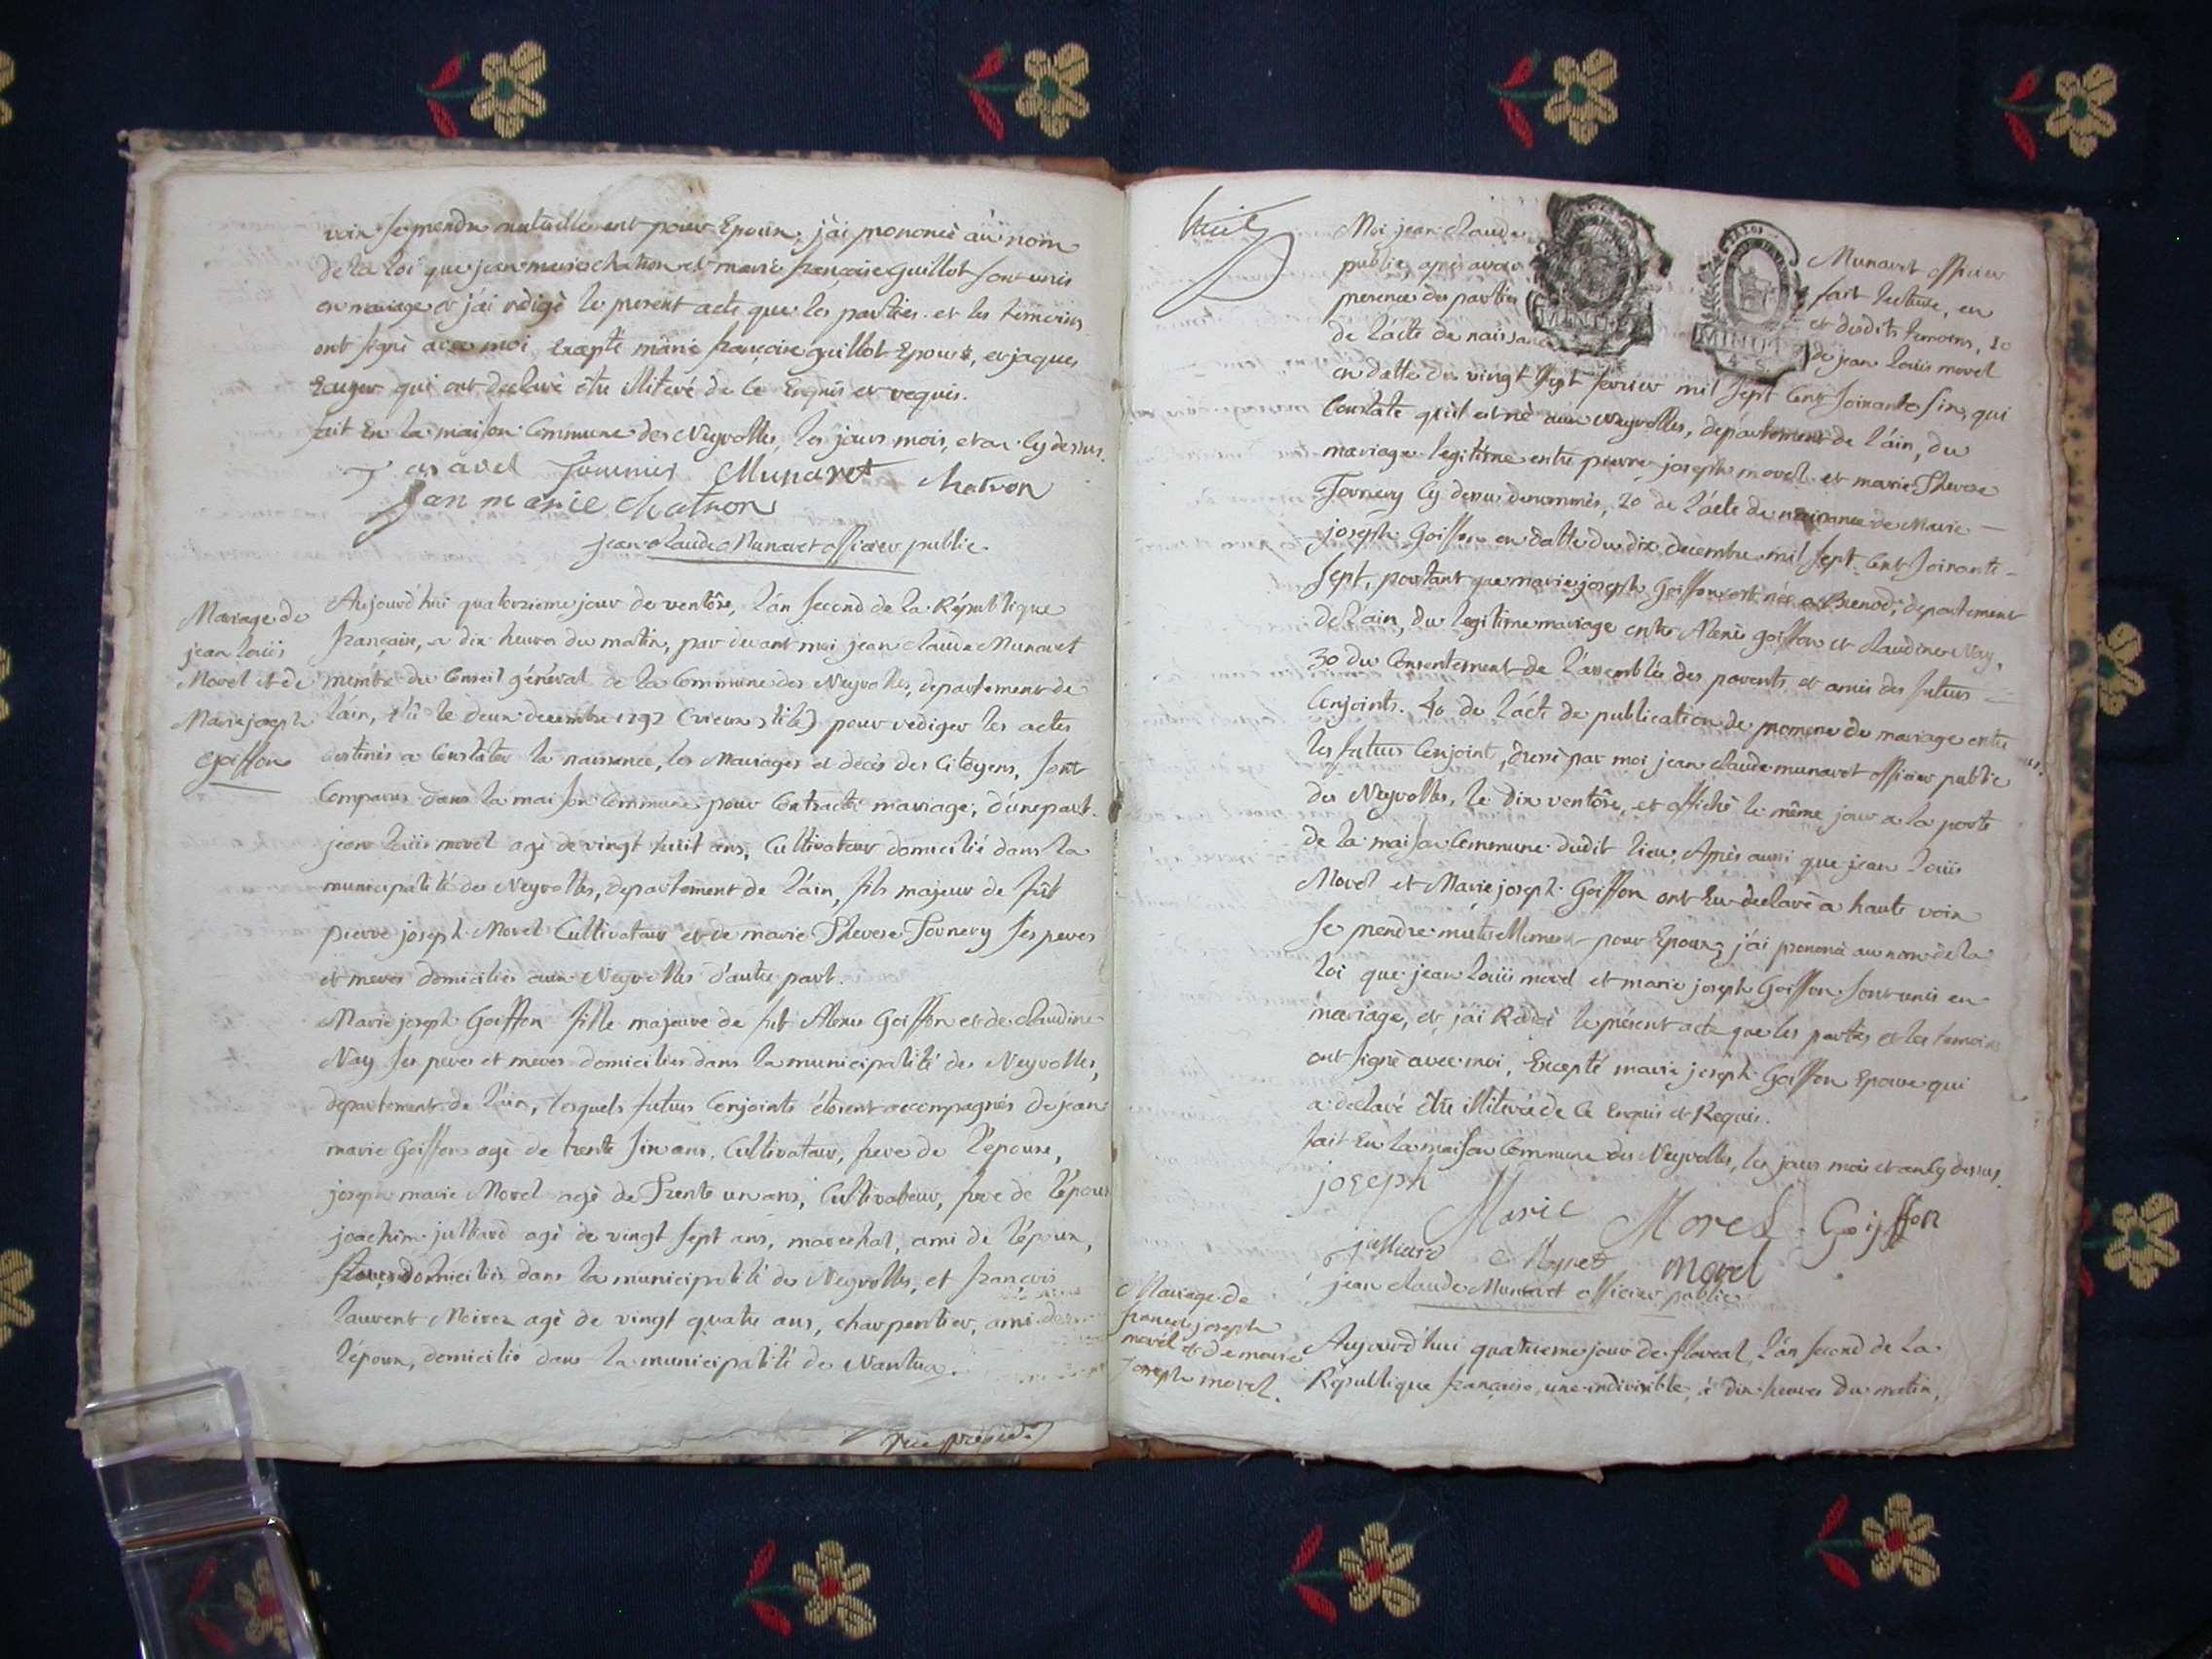 voix se prendre mutuellement pour Epoux, j'ai prononcé au nom
de la loi que jean marie chatron et marie françoise Guillot sont unis
en mariage et j'ai rédigé le present acte que les parties et les temoins
ont signé avec moi Excepté marie françoise guillot Epouse, et jaques
qui ont declaré être illiteré de ce Enquis et requis.
fait En la maison Commune des Neyrolles, les jours mois, et an Cy dessus.
Munaret chatron
Jan marie chatron
jean claude Munaret officier public
Mariage de
jean Loüis
Morel et de
Marie joseph
Goiffon
Aujourd'hui quatorzieme jour de ventôse, l'an second de la République
français, a dix heures du matin, par devant moi jean claude Munaret
membre du Conseil général de la Commune des Neyrolles, departement de
lain, élû le deux decembre 1792 (vieux stile) pour rediger les actes
destinés a Constater la naissance, les Mariages et décès des Citoyens, sont
Comparus dans la maison Commune pour Contracter mariage, d'une part.
jean loüis morel agé de vingt huit ans, Cultivateur domicilié dans la
municipalité des Neyrolles, departement de l'ain, fils majeur de fût
pierre joseph Morel Cultivateur et de marie Therese Tornery ses peres
et meres domiciliés aux Neyrolles d'autre part.
Marie joseph Goiffon fille majeure de fut Alexis Goiffon et de claudine
Nay ses peres et meres domiciliés dans la municipalité des Neyrolles,
departement de l'ain, lesquels futurs Conjoints étoient accompagnés de jean
marie Goiffon agé de trente six ans, Cultivateur, frere de l'épouse,
joseph marie Morel agé de Trente un ans, Cultivateur, frere de l'époux
joachim julliard agé de vingt sept ans, marechal, ami de l'époux,
domiciliés dans la municipalité de Neyrolles, et françois
laurent agé de vingt quatre ans, charpentier, ami de
l'époux, domicilié dans la municipalité de Nantua.
huit
Moi jean claude Munaret officier
public, après avoir fait lecture, en
presence des parties et desdits temoins, 1o
de l'acte de naissance de jean loüis morel
en datte du vingt sept fevrier mil sept Cent soixante six, qui
Constate qu'il est né aux Neyrolles, département de l'ain, du
mariage legitime entre pierre joseph morel et marie Therese
Tornery Cy dessus denommés, 2o de l'acte de naissance de Marie
joseph Goiffon en datte du dix decembre mil sept Cent soixante
sept, portant que marie joseph Goiffon est née a Brenod, departement
de l'ain, du legitime mariage entre Alexis goiffon et claudine Nay,
3o du Consentement de l'assemblée des parents et amis des futurs
Conjoints. 4o de l'acte de publication de promesse de mariage entre
les futurs Conjoint, dressé par moi jean claude munaret officier public
des Neyrolles, le dix ventôse, et affiché le même jour a la porte
de la maison Commune dudit lieu; Après aussi que jean loüis
Morel et Marie joseph Goiffon ont Eu declaré a haute voix
se prendre mutuellement pour Epoux, j'ai prononcé au nom de la
loi que jean loüis morel et marie joseph Goiffon sont unis en
mariage, et j'ai Redigé le présent acte que les parties et les temoins
ont signé avec moi, Excepté marie joseph Goiffon Epouse qui
a declaré être illiterée de Ce Enquis et Requis.
fait En la maison Commune des Neyrolles, les jours mois et an Cy dessus.
joseph Marie Morel Goiffon
julliard morel
jean claude Munaret officier public
Mariage de
françois joseph
morel et de marie
joseph morel.
Aujourd'hui quatrieme jour de floreal, l'an second de la
Republique française, une indivisible, à dix heures du matin,